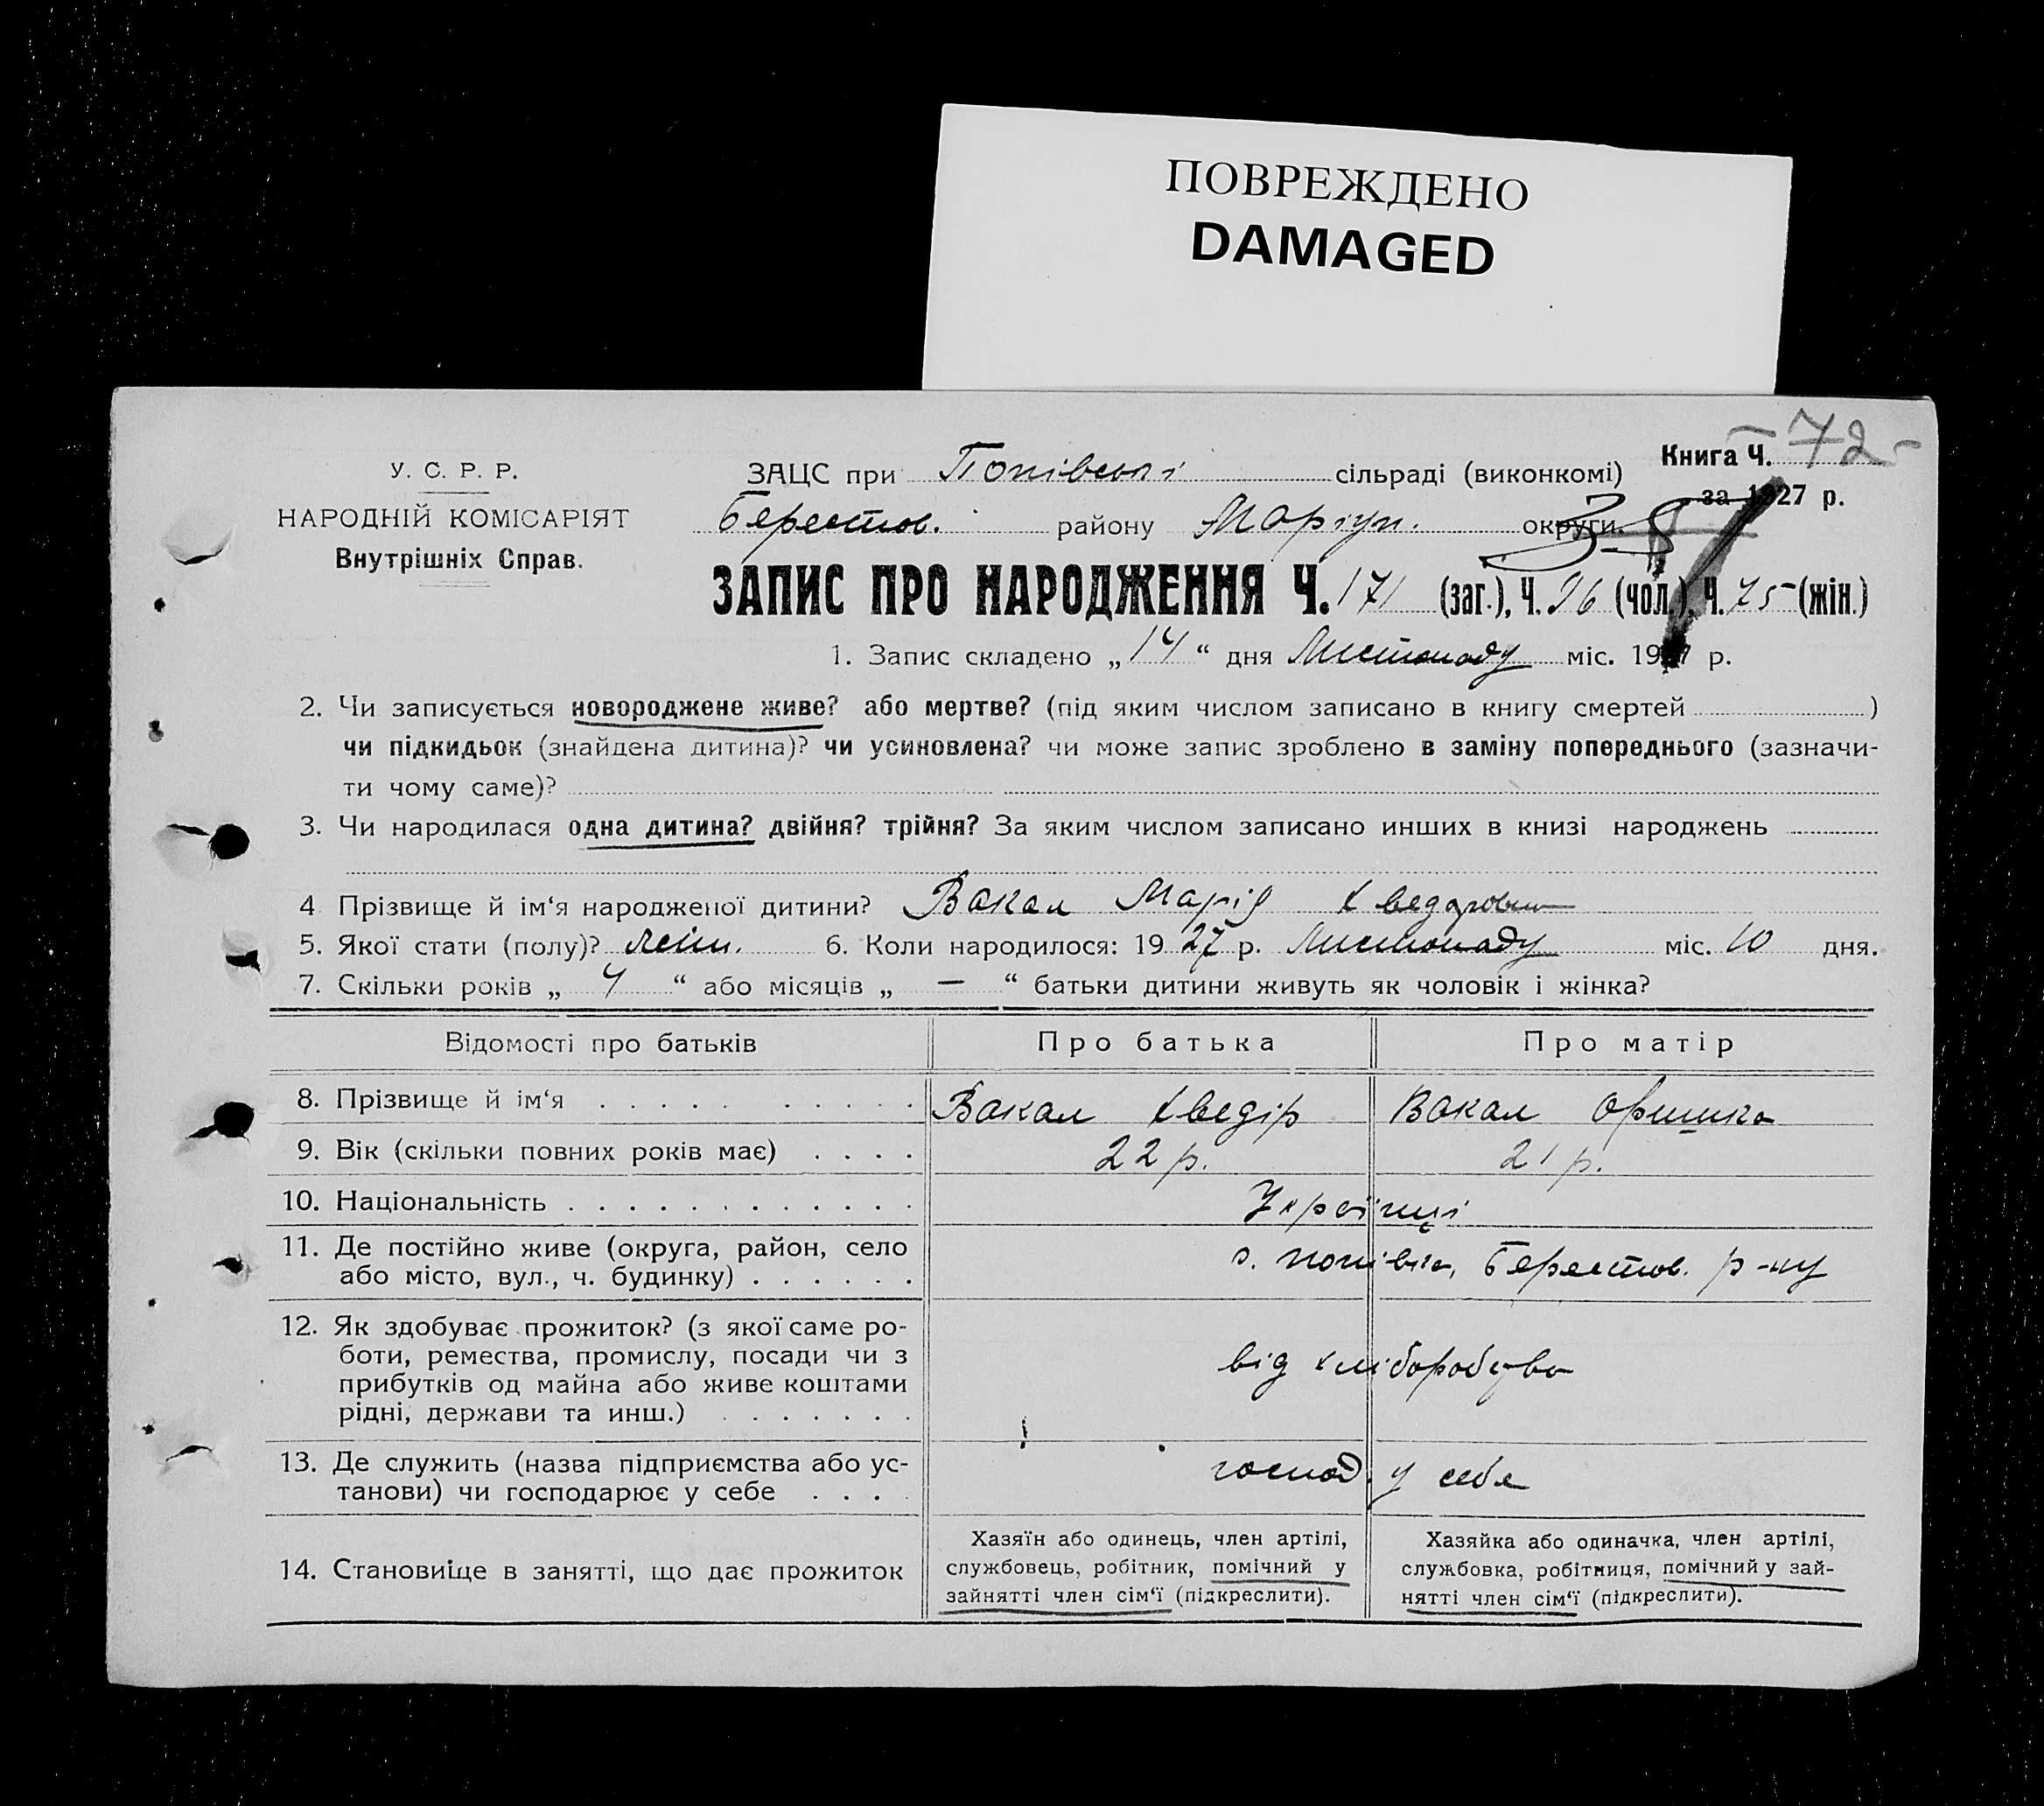 ПОВРЕЖДЕНО
DAMAGED
У. С. Р. Р.
НАРОДНІЙ КОМІСАРІЯТ
Внутрішніх Справ.
ЗАЦС при Попівські сільраді (виконкомі)
Книга Ч. 72
за 1927 р.
Берестов. району Маріуп. округи.
ЗАПИС ПРО НАРОДЖЕННЯ Ч. 171 (заг.), Ч. 96 (чол.), Ч. 75 (жін.)
1. Запис складено „ 14 “ дня Листопаду міс. 1927 р.
2. Чи записується новороджене живе? або мертве? (під яким числом записано в книгу смертей )
чи підкидьок (знайдена дитина)? чи усиновлена? чи може запис зроблено в заміну попереднього (зазначи-
ти чому саме)?
3. Чи народилася одна дитина? двійня? трійня? За яким числом записано инших в книзі народжень
4 Прізвище й ім‘я народженої дитини? Вакал Марія Хведоровна
5. Якої стати (полу)? жін. 6. Коли народилося: 19 27 р. Листопаду міс. 10 дня.
7. Скільки років „ 4 “ або місяців „ — “ батьки дитини живуть як чоловік і жінка?
Відомості про батьків Про батька Про матір
8. Прізвище й ім‘я Вакал Хведір Вакал Оришка
9. Вік (скільки повних років має) 22 р. 21 р.
10. Національність Українці
11. Де постійно живе (округа, район, село
або місто, вул., ч. будинку) с. Попівка, Берестов. р-ну
12. Як здобуває прожиток? (з якої саме ро-
боти, ремества, промислу, посади чи з
прибутків од майна або живе коштами
рідні, держави та инш.) від хліборобства
13. Де служить (назва підприємства або ус-
танови) чи господарює у себе господ. у себе
14. Становище в занятті, що дає прожиток
Хазяїн або одинець, член артілі,
службовець, робітник, помічний у
зайнятті член сім‘ї (підкреслити).
Хазяйка або одиначка, член артілі,
службовка, робітниця, помічний у зай-
нятті член сім‘ї (підкреслити).